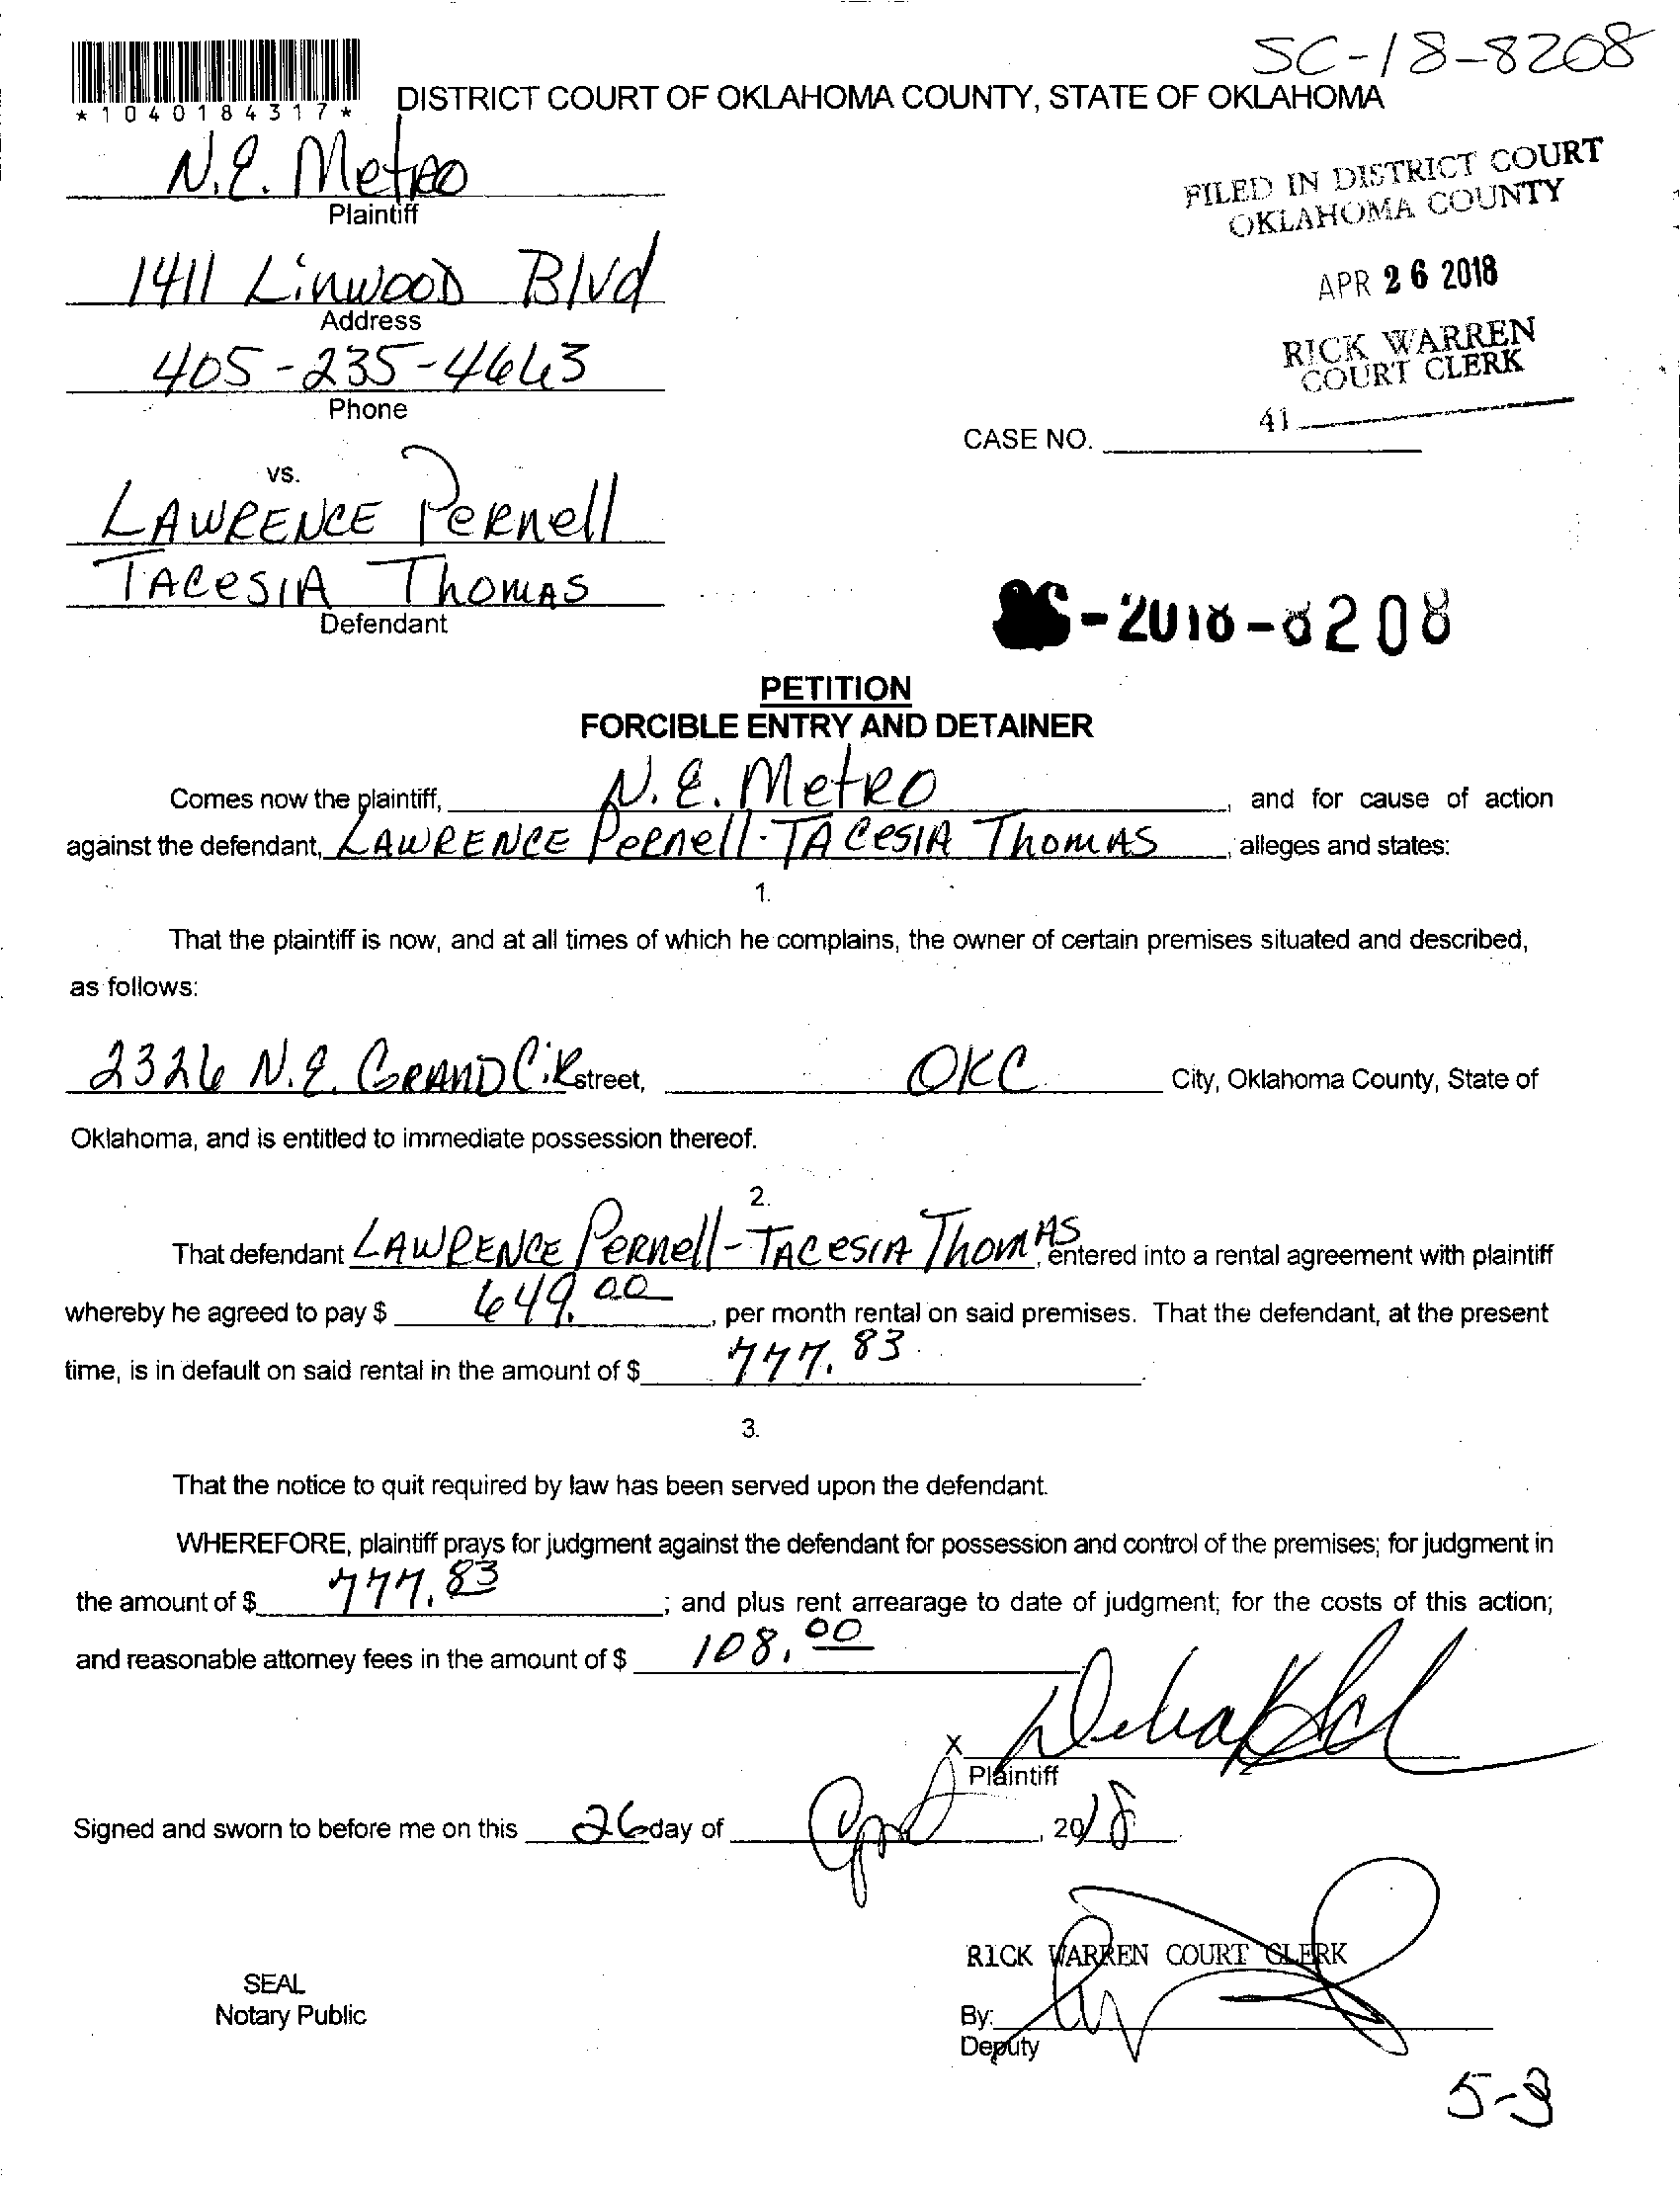 SC-18-8208
*1040184317*
DISTRICT COURT OF OKLAHOMA COUNTY, STATE OF OKLAHOMA
N.E. Metro
Plaintiff
FILED IN DISTRICT COURT
OKLAHOMA COUNTY
1411 Linwood Blvd
Address
APR 26 2018
405-235-4663
Phone
RICK WARREN
COURT CLERK
41
CASE NO.
vs.
LAWRENCE Pernell
TACESIA Thomas
Defendant
-2018-8208
PETITION
FORCIBLE ENTRY AND DETAINER
Comes now the plaintiff, N.E. Metro, and for cause of action
against the defendant, LAWRENCE Pernell-TACESIA Thomas, alleges and states:
1.
That the plaintiff is now, and at all times of which he complains, the owner of certain premises situated and described,
as follows:
2326 N.E. GRAND Cir street, OKC City, Oklahoma County, State of
Oklahoma, and is entitled to immediate possession thereof.
2.
That defendant LAWRENCE Pernell-TACESIA Thomas, entered into a rental agreement with plaintiff
whereby he agreed to pay $ 649.00, per month rental on said premises. That the defendant, at the present
time, is in default on said rental in the amount of $ 777.83.
3.
That the notice to quit required by law has been served upon the defendant.
WHEREFORE, plaintiff prays for judgment against the defendant for possession and control of the premises; for judgment in
the amount of $ 777.83; and plus rent arrearage to date of judgment; for the costs of this action;
and reasonable attorney fees in the amount of $ 108.00
X
Plaintiff
Signed and sworn to before me on this 26 day of April, 2018
RICK WARREN COURT CLERK
SEAL
Notary Public
By:
Deputy
5-3